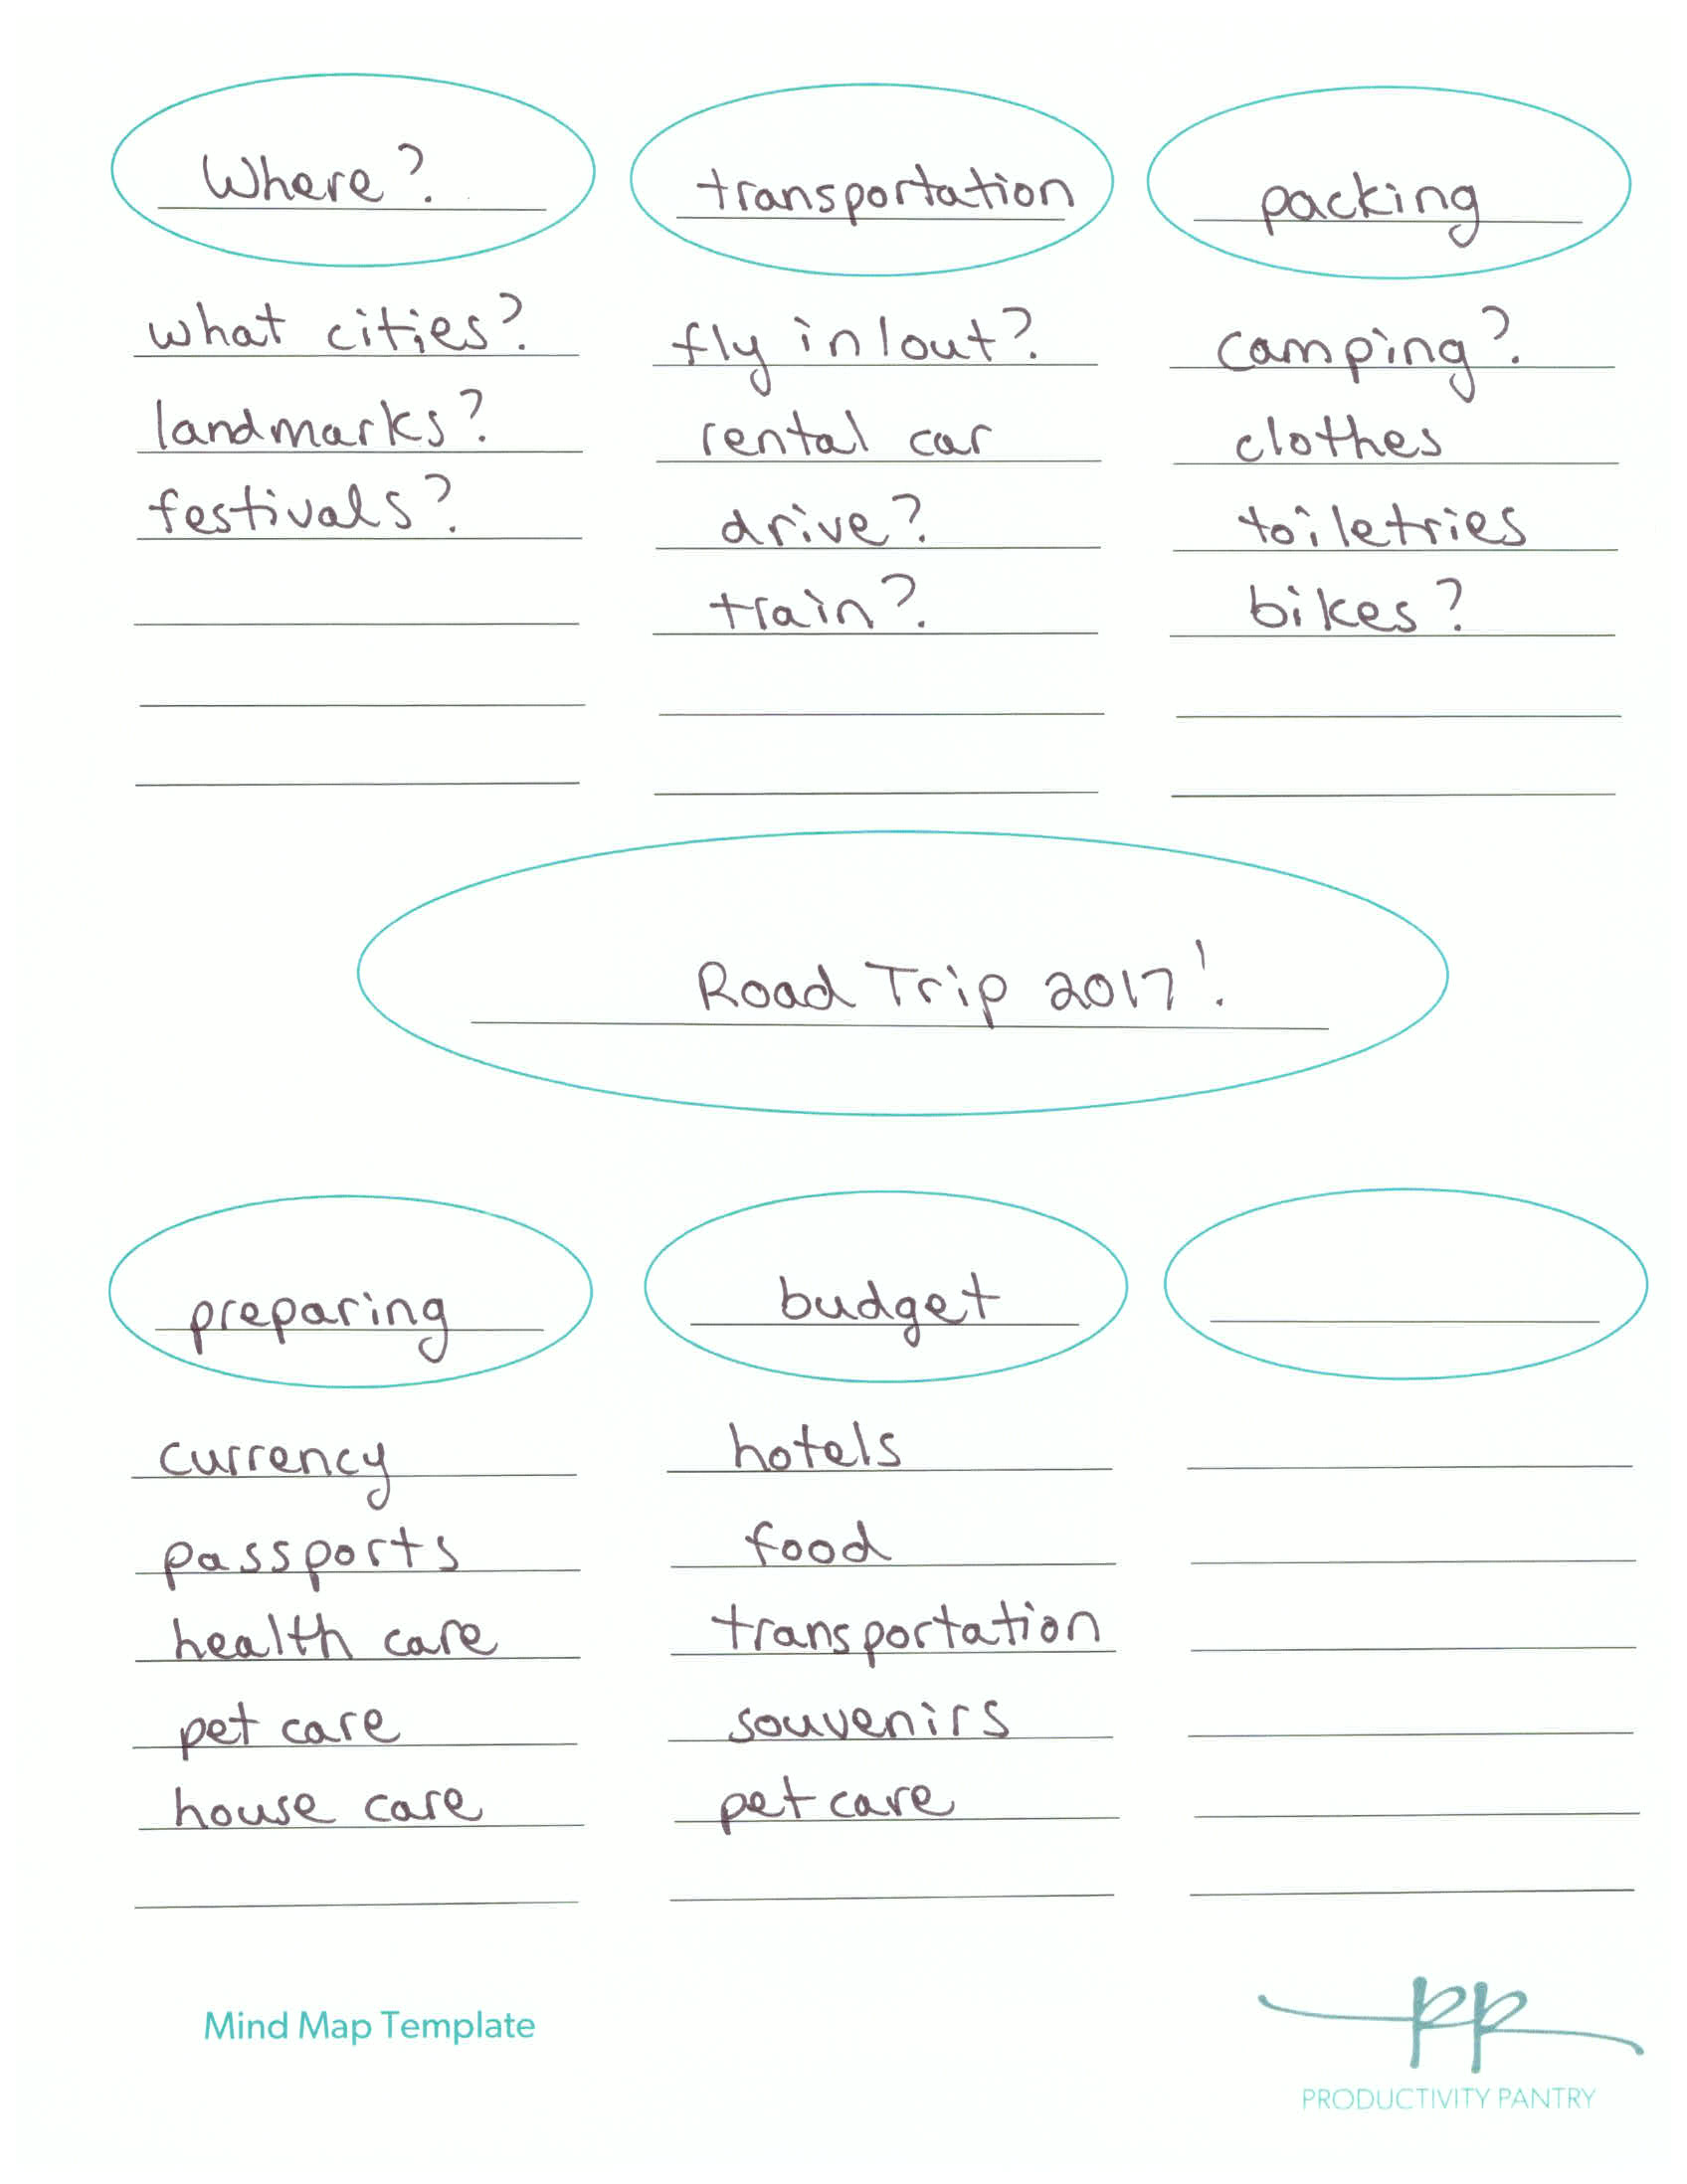 Where?
what cities?
landmarks?
festivals?
transportation
fly in/out?
rental car
drive?
train?
packing
camping?
clothes
toiletries
bikes?
Road Trip 2017!
preparing
currency
passports
health care
pet care
house care
budget
hotels
food
transportation
souvenirs
pet care
Mind Map Template
pp
PRODUCTIVITY PANTRY